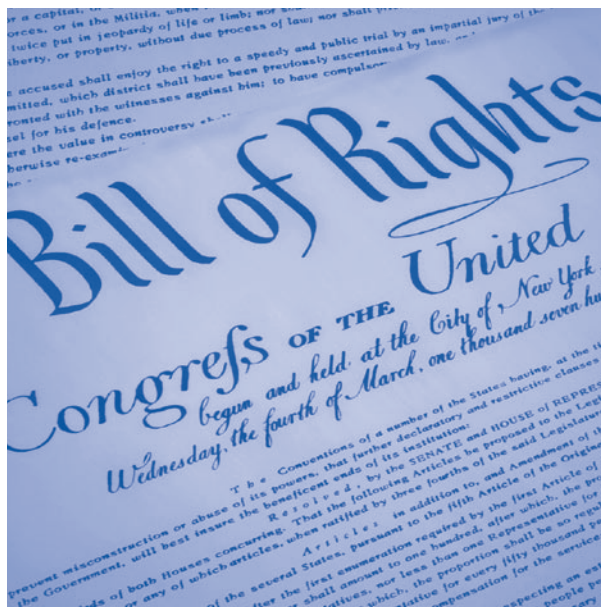 or a capital, or
orces, or in the Militia, when
twice put in jeopardy of life or limb; nor shall
iberty, or property, without due process of law; nor shall pri
e accused shall enjoy the right to a speedy and public trial by an impartial jury of the
mitted, which district shall have been previously ascertained by law, and
ronted with the witnesses against him; to have compulsor
sel for his defence.
ere the value in controversy shall
herwise re-exami
Bill of Rights
Congreſs OF THE United
begun and held at the City of New York
Wednesday, the fourth of March, one thousand seven hu
The Conventions of a number of the States having, at the ti
prevent misconstruction or abuse of its powers, that further declaratory and restrictive clauses
the Government, will best insure the beneficent ends of its institution:
Resolved, by the SENATE and HOUSE of REPRESE
rds of both Houses concurring. That the following Articles be proposed to the Legisl
or any of which articles, when ratified by three fourths of the said Legislatur
Articles in addition to, and Amendment of th
of the several States, pursuant to the fifth Article of the Origin
ter the first enumeration required by the first Article of
r shall amount to one hundred, after which, the pro
tatives, nor less than one Representative for
which, the proportion shall be so regu
tative for every fifty thousand pe
mpensation for the service
pecting an est
people pe